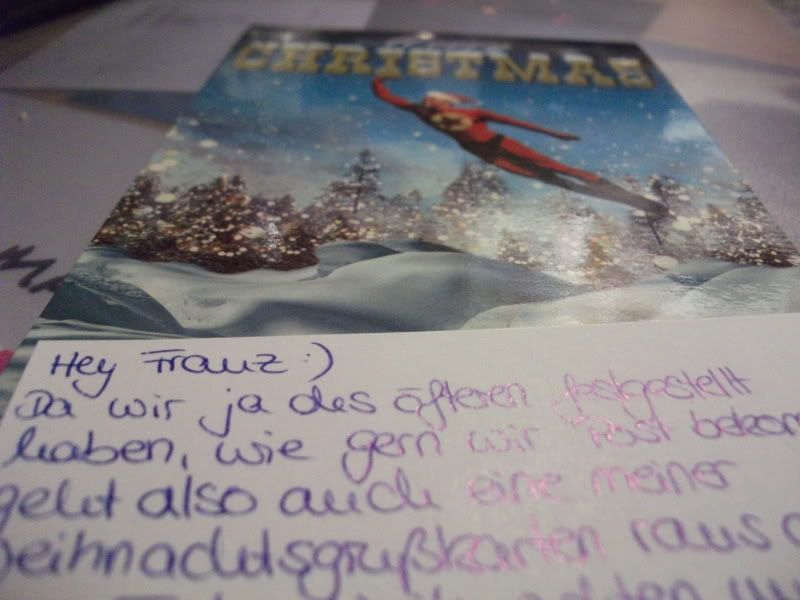 CHRISTMAS
Hey Franz :)
Da wir ja des öfteren festgestellt
haben, wie gern wir Post bekom
geht also auch eine meiner
eihnachtsgrußkarten raus